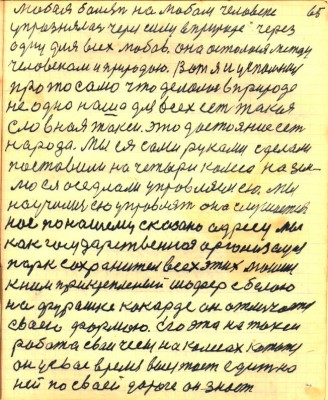 любая бомян на любом человеке 65
упражнялах через силу в природе через
одну для всех любов. она осталась между
человеком и природою. Вот я и успомнил
про то само что делаем в природе
не одно наша для всех ест такая
славная такси. это достояние ест
народа. Мы ея сами руками сделали
поставили на четыри колеса на зим-
лю ея оседлали управляем ею. Мы
научилис ею управлят она слушается
нас по нашему сказано адресу. Мы
как государственная организация
парк сохранител всех этих машин
к ним прикрепленый шофер с белою
на фуражке какарде он отличаэт
своею формою. Его эта на такси
работа сваи чем на колесах катит
он у свае время выежает едит по
ней по своей дороге он знает